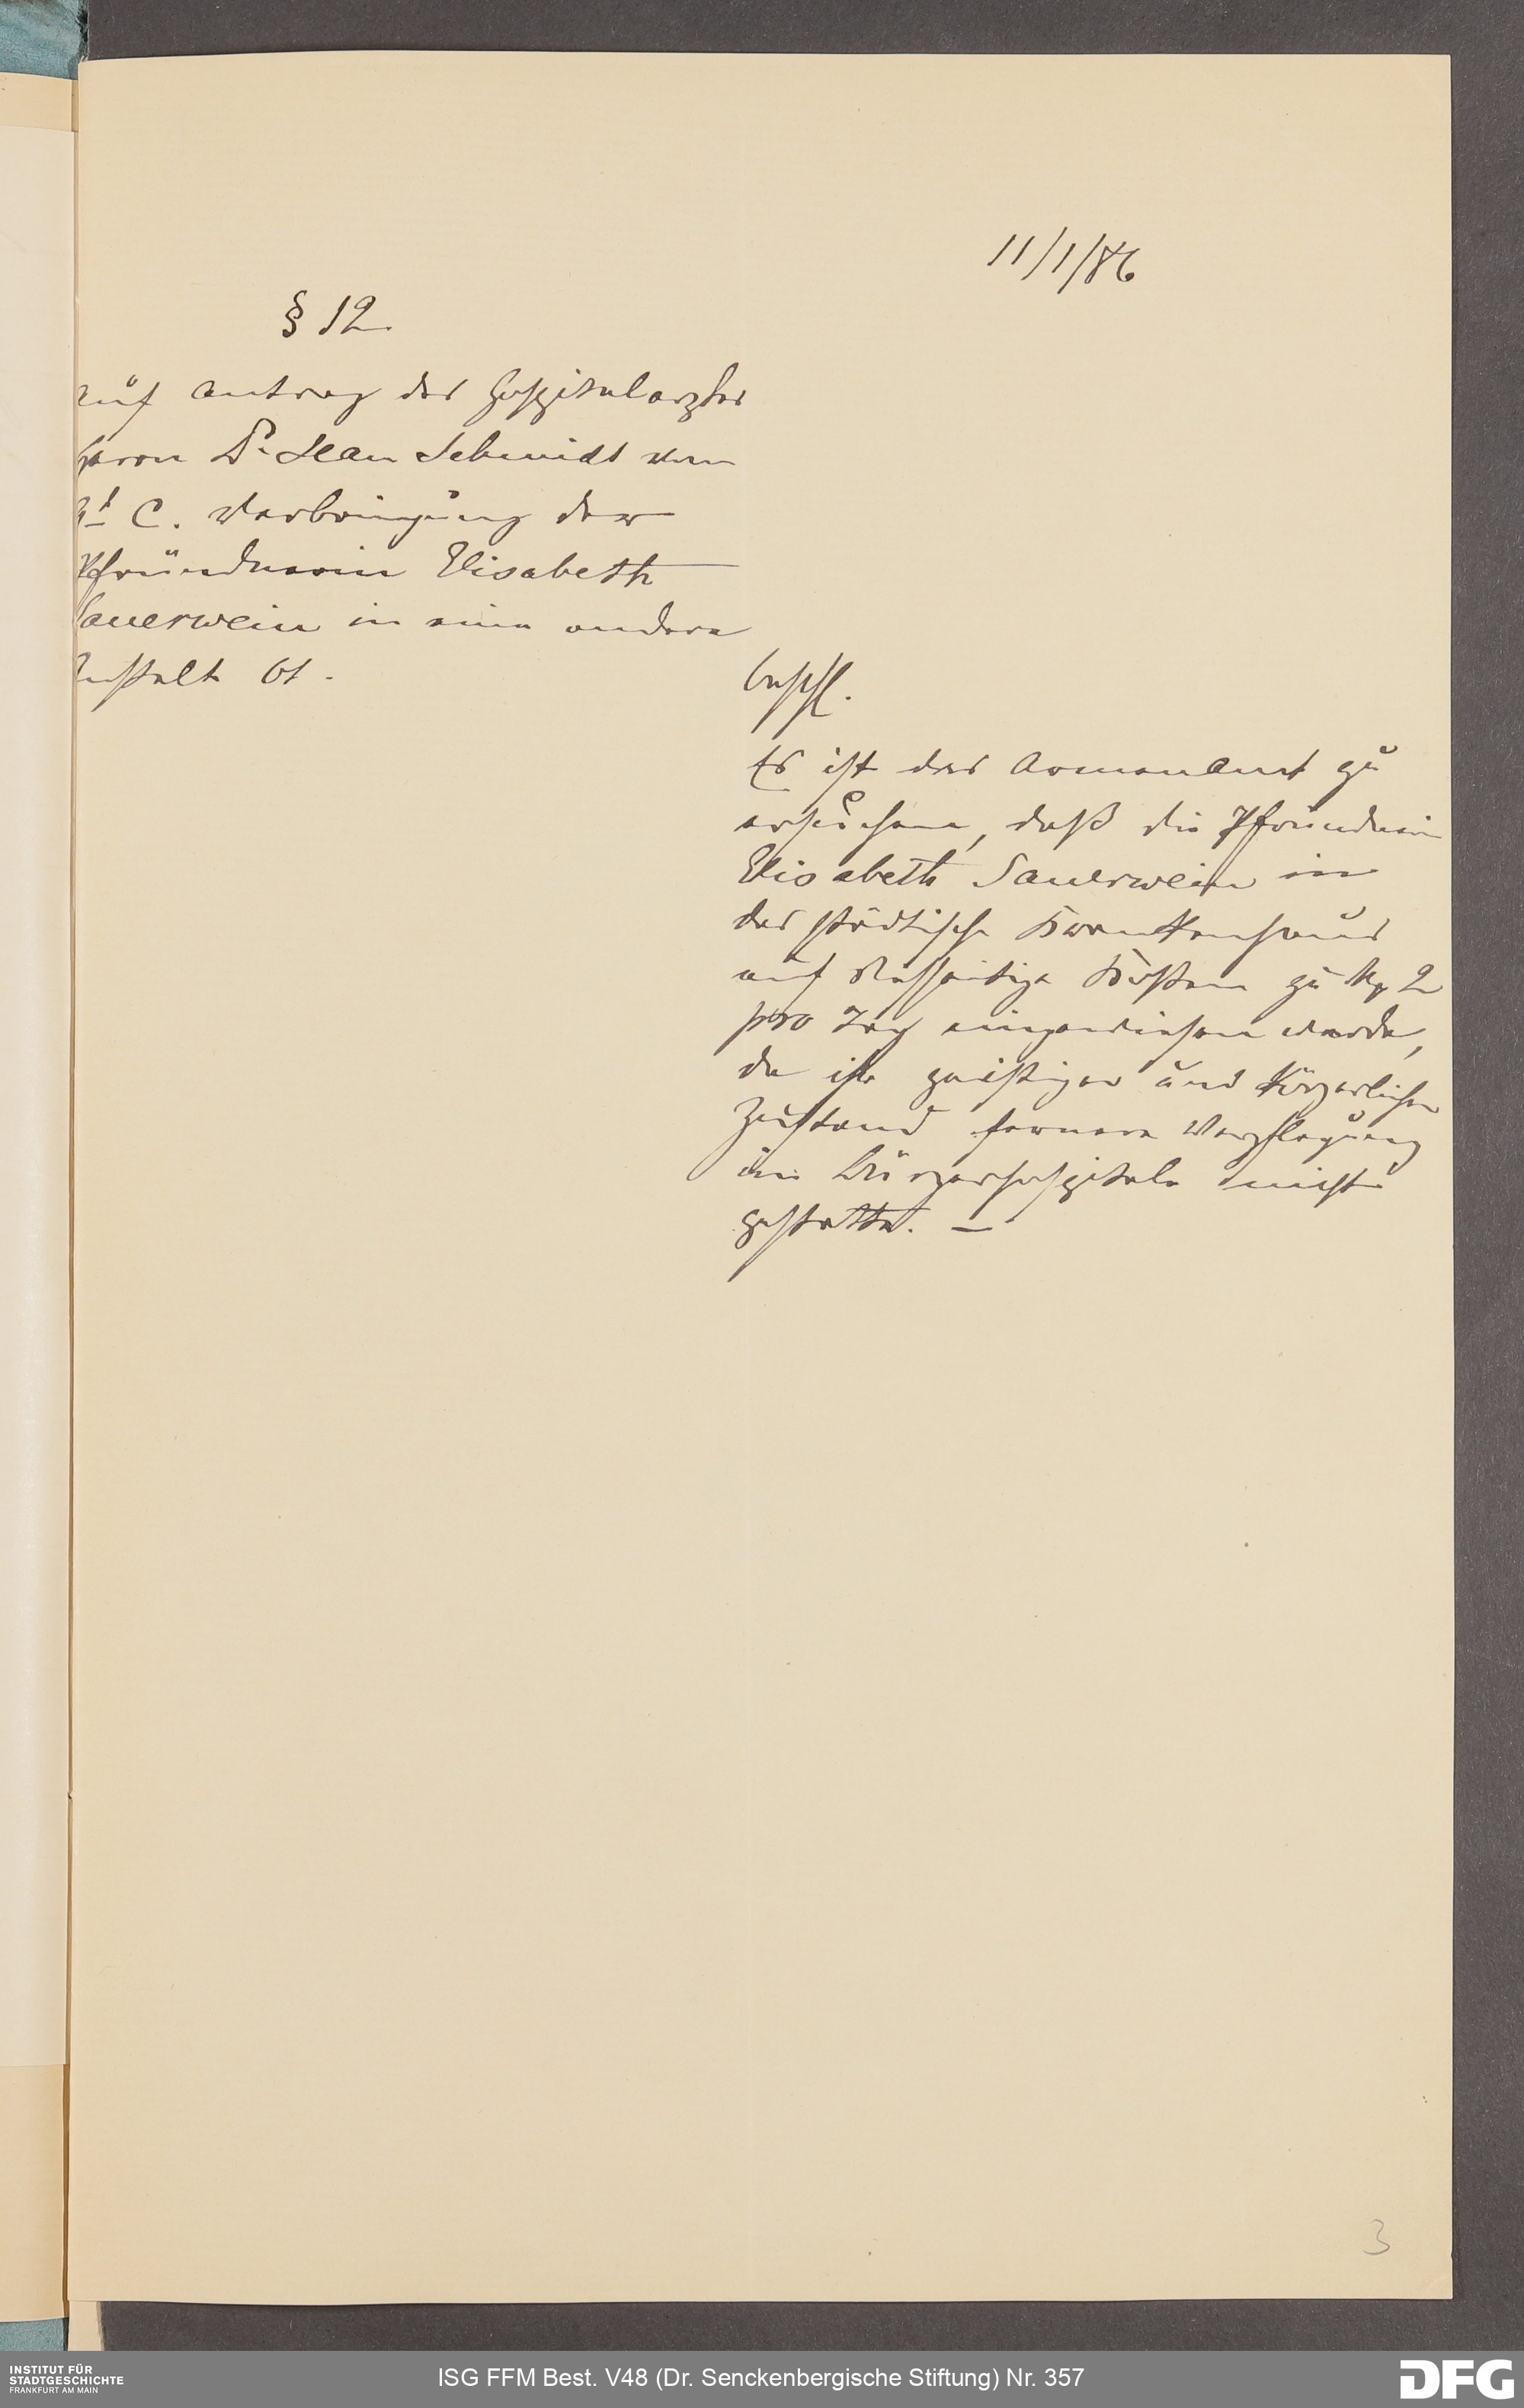 11/1/86
§ 12
Auf Antrag des Hospitalarztes
Herrn Dr. Jean Schmidt vom
C. Verbringung der
Pfründnerin Elisabeth
Sauerwein in eine andere
Anstalt bt.
beschl.
Es ist das Armenamt zu
ersuchen, daß die Pfründnerin
Elisabeth Sauerwein in
das städtische Krankenhaus
auf diesseitige Kosten zu M 2
pro Tag eingewiesen werde,
da ihr geistiger und körperlicher
Zustand fernere Verpflegung
im Bürgerhospitale nicht
gestattet. —
3
INSTITUT FÜR
STADTGESCHICHTE
FRANKFURT AM MAIN
ISG FFM Best. V48 (Dr. Senckenbergische Stiftung) Nr. 357
DFG